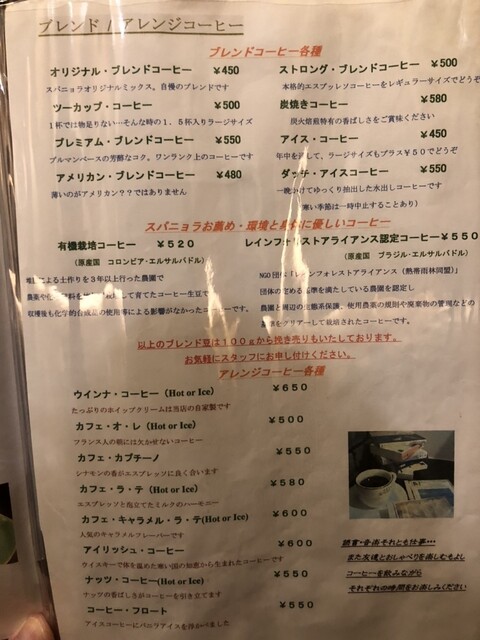 ブレンド / アレンジコーヒー
ブレンドコーヒー各種
オリジナル・ブレンドコーヒー ￥450
スパニョラオリジナルミックス。自慢のブレンドです
ツーカップ・コーヒー ￥500
1杯では物足りない…そんな時の1.5杯入りラージサイズ
プレミアム・ブレンドコーヒー ￥550
ブルマンベースの芳醇なコク。ワンランク上のコーヒーです
アメリカン・ブレンドコーヒー ￥480
薄いのがアメリカン？？ではありません
ストロング・ブレンドコーヒー ￥500
本格的エスプレッソコーヒーをレギュラーサイズでどうぞ
炭焼きコーヒー ￥580
炭火焙煎特有の香ばしさをご賞味ください
アイス・コーヒー ￥450
年中を通して、ラージサイズもプラス￥50でどうぞ
ダッチ・アイスコーヒー ￥550
一晩かけてゆっくり抽出した水出しコーヒーです
（寒い季節は一時中止することあり）
スパニョラお薦め・環境と身体に優しいコーヒー
有機栽培コーヒー ￥520
（原産国 コロンビア・エルサルバドル）
による土作りを3年以上行った農園で
農薬や化学 料を して育てたコーヒー生豆で
収穫後も化学的合成 の使用等による影響がなかったコーヒーです。
レインフォレストアライアンス認定コーヒー ￥550
（原産国 ブラジル・エルサルバドル）
NGO団体「レインフォレストアライアンス（熱帯雨林同盟）」
団体の定める基準を満たしている農園を認定し
農園と周辺の生態系保護、使用農薬の規則や廃棄物の管理などの
基準をクリアーして栽培されたコーヒーです。
以上のブレンド豆は100gから挽き売りもいたしております。
お気軽にスタッフにお申し付けください。
アレンジコーヒー各種
ウインナ・コーヒー（Hot or Ice） ￥650
たっぷりのホイップクリームは当店の自家製です
カフェ・オ・レ（Hot or Ice） ￥500
フランス人の朝には欠かせないコーヒー
カフェ・カプチーノ ￥550
シナモンの香がエスプレッソに良く合います
カフェ・ラ・テ（Hot or Ice） ￥580
エスプレッソと泡立てたミルクのハーモニー
カフェ・キャラメル・ラ・テ(Hot or Ice) ￥600
人気のキャラメルフレーバーです
アイリッシュ・コーヒー ￥600
ウイスキーで体を温めた寒い国の知恵から生まれたコーヒーです
ナッツ・コーヒー(Hot or Ice) ￥550
ナッツの香ばしさがコーヒーを引き立てます
コーヒー・フロート ￥550
アイスコーヒーにバニラアイスを浮かべました
読書・音楽それとも仕事・・・
また友達とおしゃべりを楽しむもよし
コーヒーを飲みながら
それぞれの時間をお楽しみください